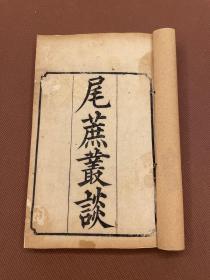 尾蔗叢談